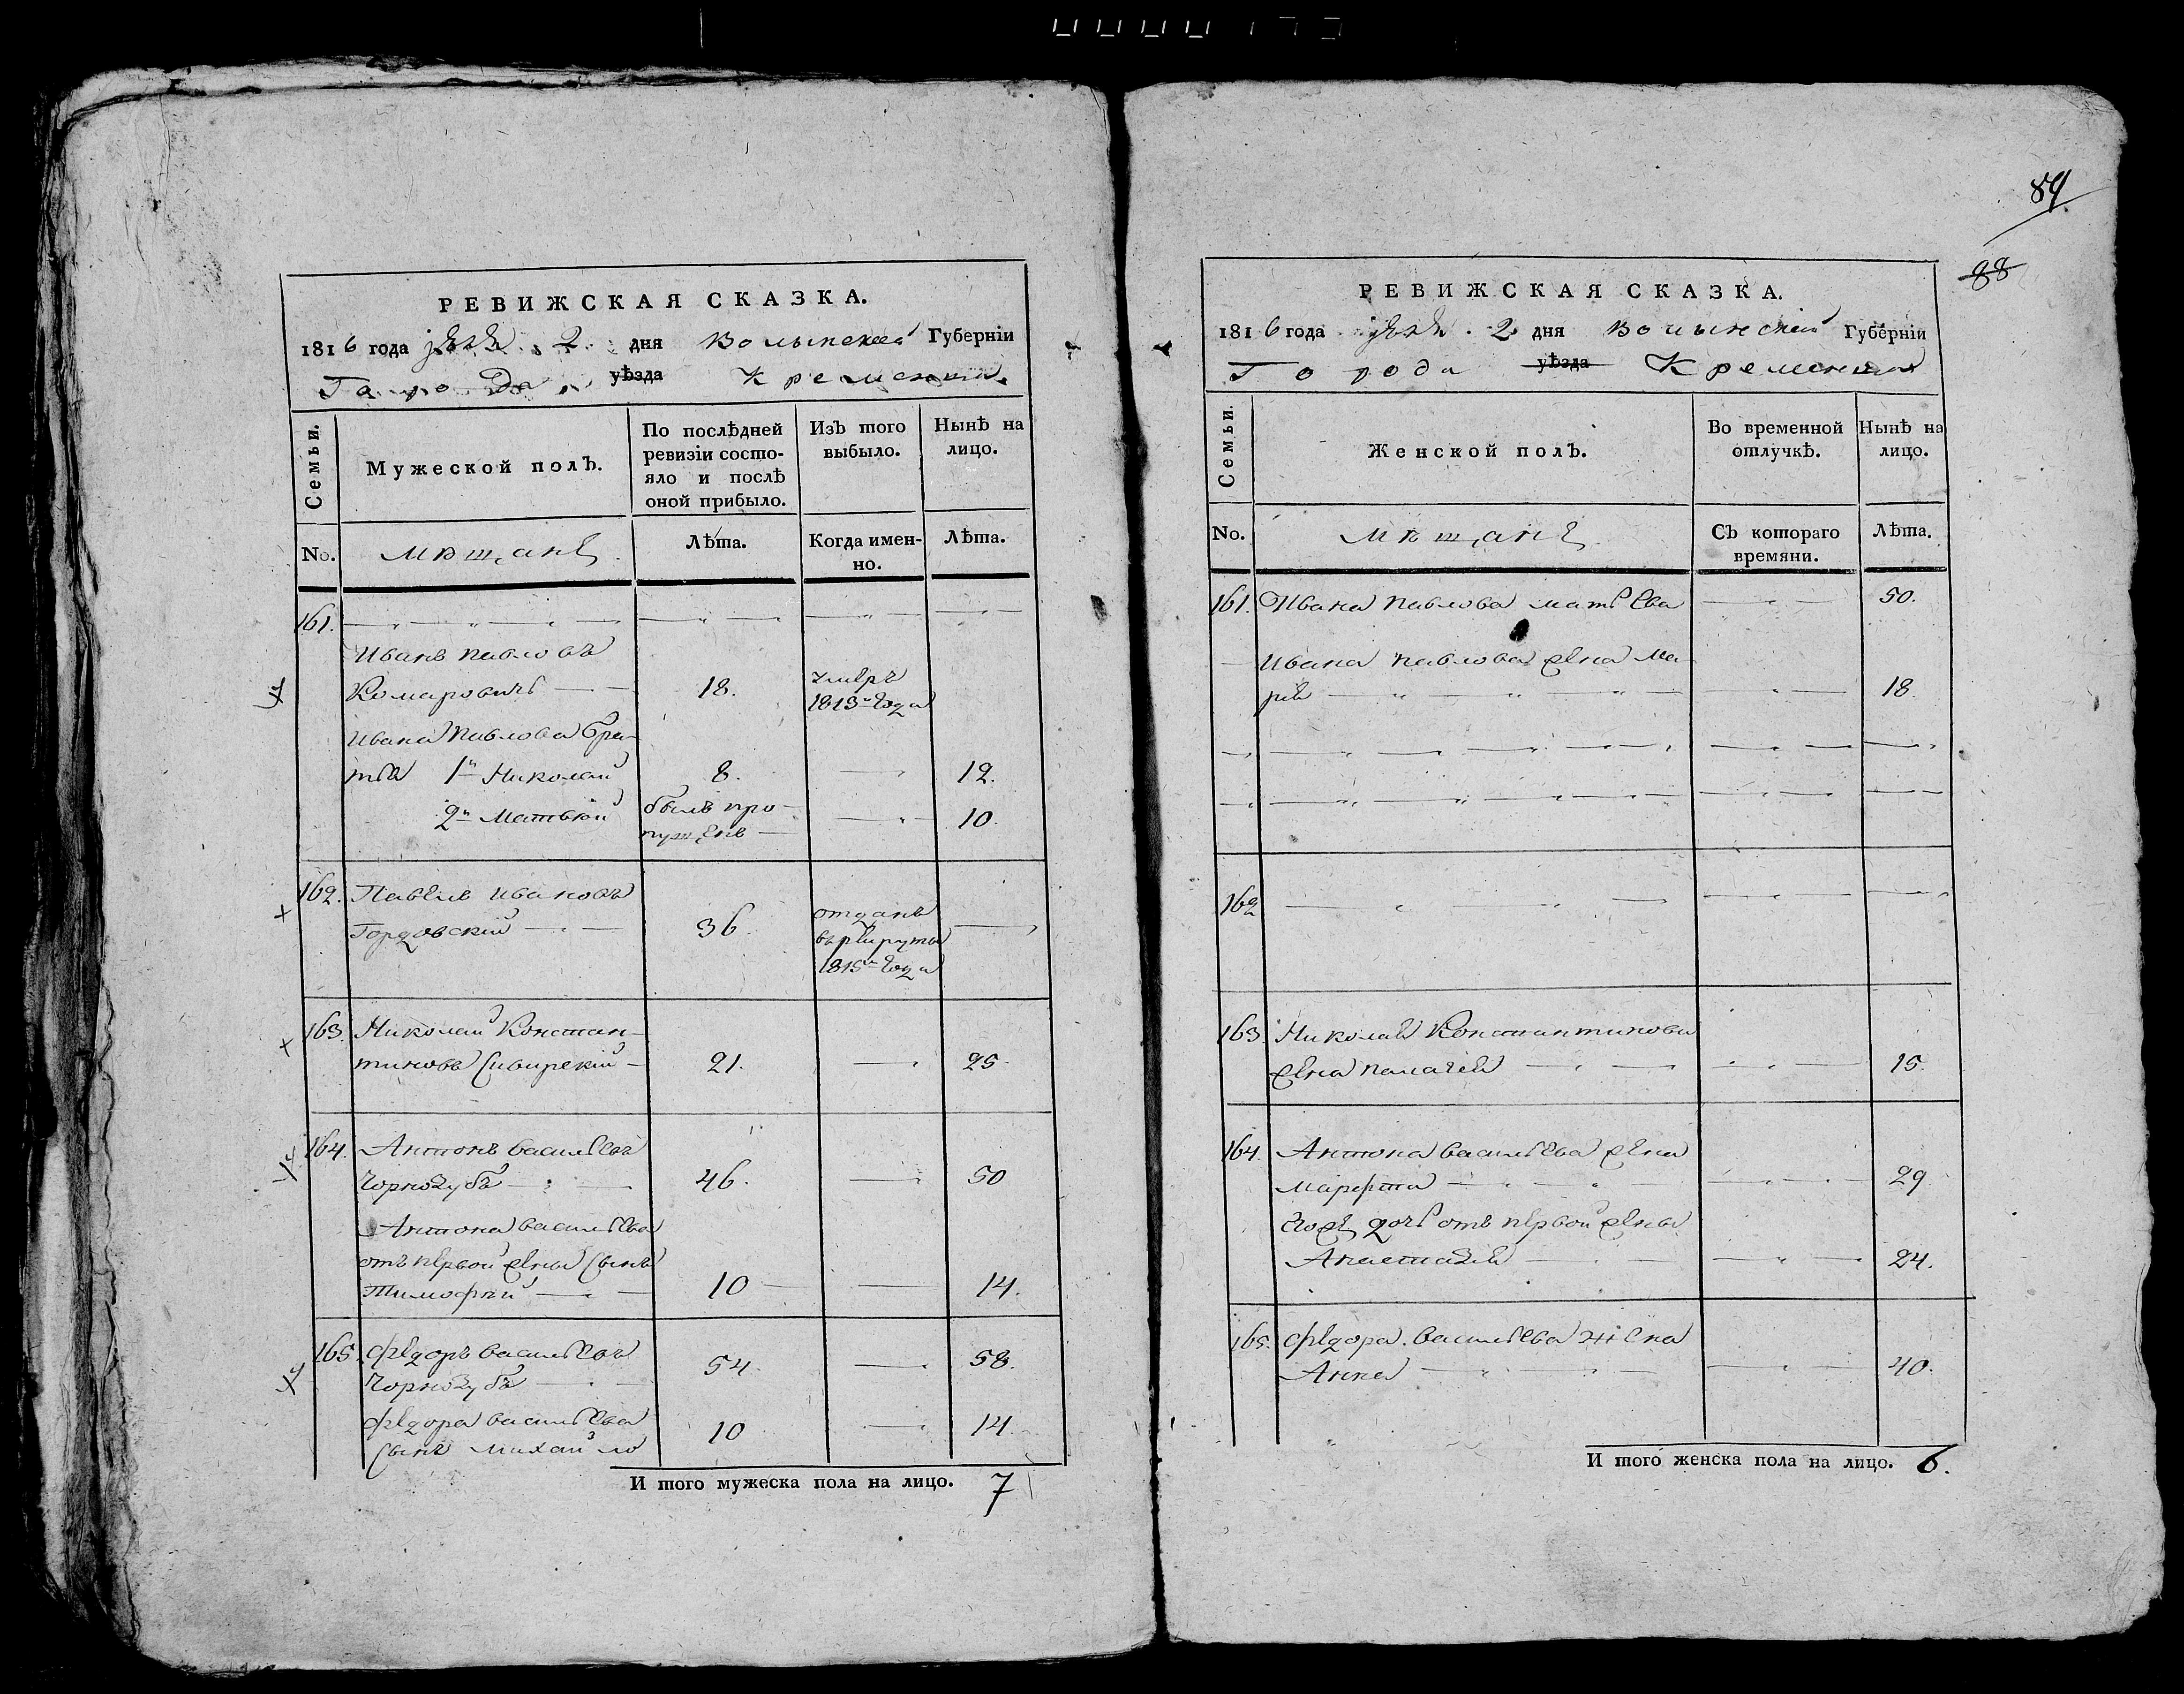 89
88
РЕВИЖСКАЯ СКАЗКА.
1816 года 2 дня Волынской Губерніи
Города уѣзда Кременца
Семьи.
Мужеской полъ.
По послѣдней ревизіи состо-
яло и послѣ
оной прибыло.
Изъ того
выбыло.
Нынѣ на
лицо.
No.
мѣщанѣ
Лѣта.
Когда имен-
но.
Лѣта.
161.
Иванъ Павловъ
Комаровичь 18. умеръ
1813го года
Ивана Павлова бра-
тья 1й Николай 8. 12.
2й Матвѣй былъ про-
пущенъ 10.
162. Павелъ Ивановъ
Гордовский 36 отданъ
въ рекруты
1815го года
163. Николай Констан-
тиновъ Сибирский 21. 25
164. Антонъ Васильевъ
Чорнозубъ 46. 50
Антона Васильева
отъ первой жены сынъ
Тимофей 10 14.
165. Федоръ Васильевъ
Чорнозубъ 54 58.
Федора Васильева
сынъ Михайло 10 14.
И того мужеска пола на лицо. 7
РЕВИЖСКАЯ СКАЗКА.
1816 года 2 дня Волынской Губерніи
Города уѣзда Кременца
Семьи.
Женской полъ.
Во временной
отлучкѣ.
Нынѣ на
лицо.
No.
мѣщанѣ
Съ котораго
времяни.
Лѣта.
161. Ивана Павлова мать Ева 50.
Ивана Павлова жена Ма-
рія 18
162
163. Николая Константинова
жена Палагея 15.
164. Антона Васильева жена
Марфта 29
Его жъ дочь отъ первой жены
Анастазія 24.
165. Федора Васильева жена
Анна 40.
И того женска пола на лицо. 6.